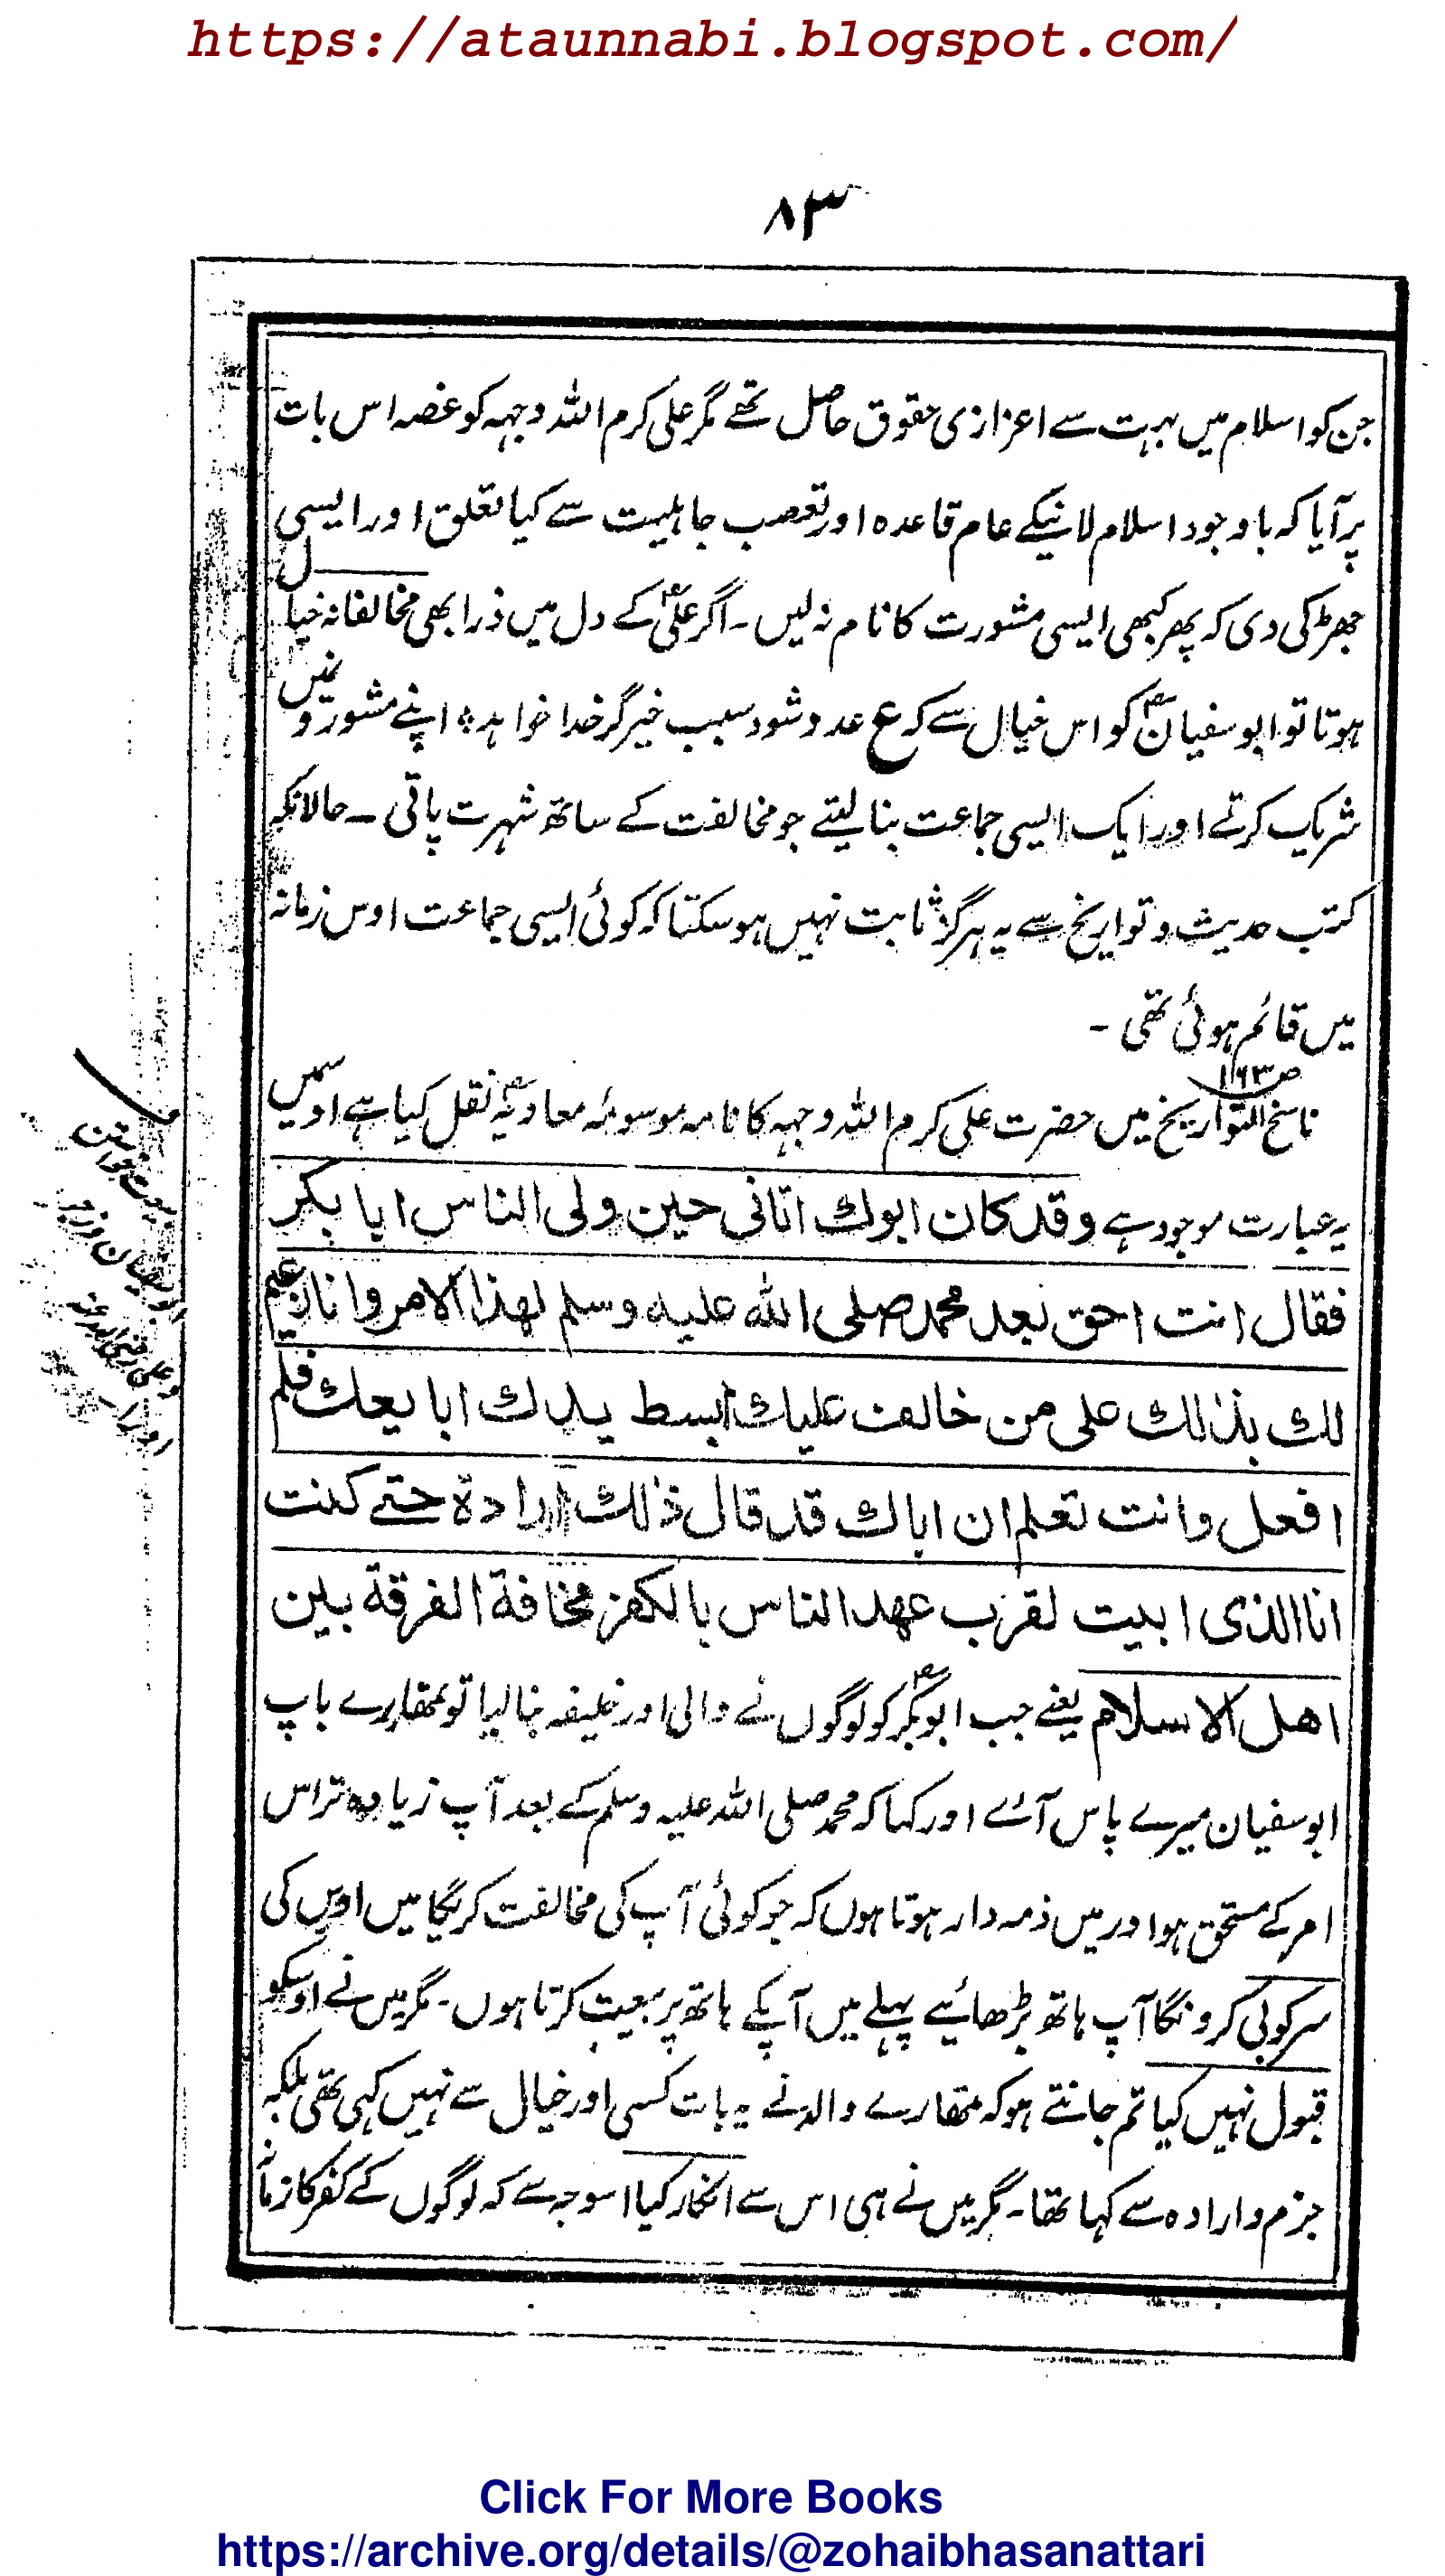 https://ataunnabi.blogspot.com/
۸۳
جن کو اسلام میں بہت سے اعزازی حقوق حاصل تھے مگر علی کرم اللہ وجہہ کو غصہ اس بات
پر آیا کہ باوجود اسلام لانیکے عام قاعدہ اور تعصب جاہلیت سے کیا تعلق اور ایسی
جھڑکی دی کہ پھر کبھی ایسی مشورت کا نام نہ لیں ۔ اگر علیؓ کے دل میں ذرا بھی مخالفانہ خیال
ہوتا تو ابو سفیانؓ کو اس خیال سے کہ ع عدو شود سبب خیر گر خدا خواہد ؛ اپنے مشورو نمیں
شریک کرتے اور ایک ایسی جماعت بنا لیتے جو مخالفت کے ساتھ شہرت پاتی ۔ حالانکہ
کتب حدیث و تواریخ سے یہ ہرگز ثابت نہیں ہو سکتا کہ کوئی ایسی جماعت اوس زمانہ
میں قائم ہوئی تھی ۔
ص۱۶۳
ناسخ التواریخ میں حضرت علی کرم اللہ وجہہ کا نامہ موسومہ معاویہؓ نقل کیا ہے اوسمیں
یہ عبارت موجود ہے وقد كان ابوك اتانى حين ولى الناس ابا بكر
فقال انت احق بعد محمد صلى الله عليه وسلم لهذا الامر وانا زعيم
لك بذلك على من خالف عليك ابسط يدك ابايعك فلم
افعل وانت تعلم ان اباك قد قال ذلك ارادة حتے كنت
انا الذى ابيت لقرب عهد الناس بالكفر مخافة الفرقة بين
اهل الاسلام یعنے جب ابو بکرؓ کو لوگوں نے والی اور خلیفہ بنا لیا تو تمھارے باپ
ابو سفیان میرے پاس آئے اور کہا کہ محمد صلی اللہ علیہ وسلم کے بعد آپ زیادہ تر اس
امر کے مستحق ہو اور میں ذمہ دار ہوتا ہوں کہ جو کوئی آپ کی مخالفت کریگا میں اوس کی
سرکوبی کرونگا آپ ہاتھ بڑھائیے پہلے میں آپکے ہاتھ پر بیعت کرتا ہوں ۔ مگر میں نے اوسکو
قبول نہیں کیا تم جانتے ہو کہ تمھارے والد نے یہ بات کسی اور خیال سے نہیں کہی تھی بلکہ
جزم و ارادہ سے کہا تھا ۔ مگر میں نے ہی اس سے انکار کیا اسوجہ سے کہ لوگوں کے کفر کا زمانہ
Click For More Books
https://archive.org/details/@zohaibhasanattari